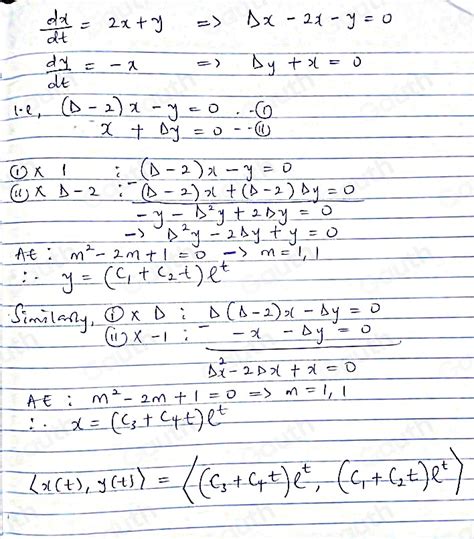 dx/dt = 2x + y => Δx - 2x - y = 0
dy/dt = -x => Δy + x = 0
i.e, (Δ - 2)x - y = 0 --- (i)
x + Δy = 0 --- (ii)
(i) x 1 : (Δ - 2)x - y = 0
(ii) x Δ - 2 : - (Δ - 2)x + (Δ - 2)Δy = 0
- y - Δ²y + 2Δy = 0
-> Δ²y - 2Δy + y = 0
AE : m² - 2m + 1 = 0 -> m = 1, 1
∴ y = (C₁ + C₂t)e^t
Similarly, (i) x Δ : Δ(Δ - 2)x - Δy = 0
(ii) x -1 : - -x - Δy = 0
Δ²x - 2Δx + x = 0
AE : m² - 2m + 1 = 0 => m = 1, 1
∴ x = (C₃ + C₄t)e^t
⟨x(t), y(t)⟩ = ⟨(C₃ + C₄t)e^t, (C₁ + C₂t)e^t⟩